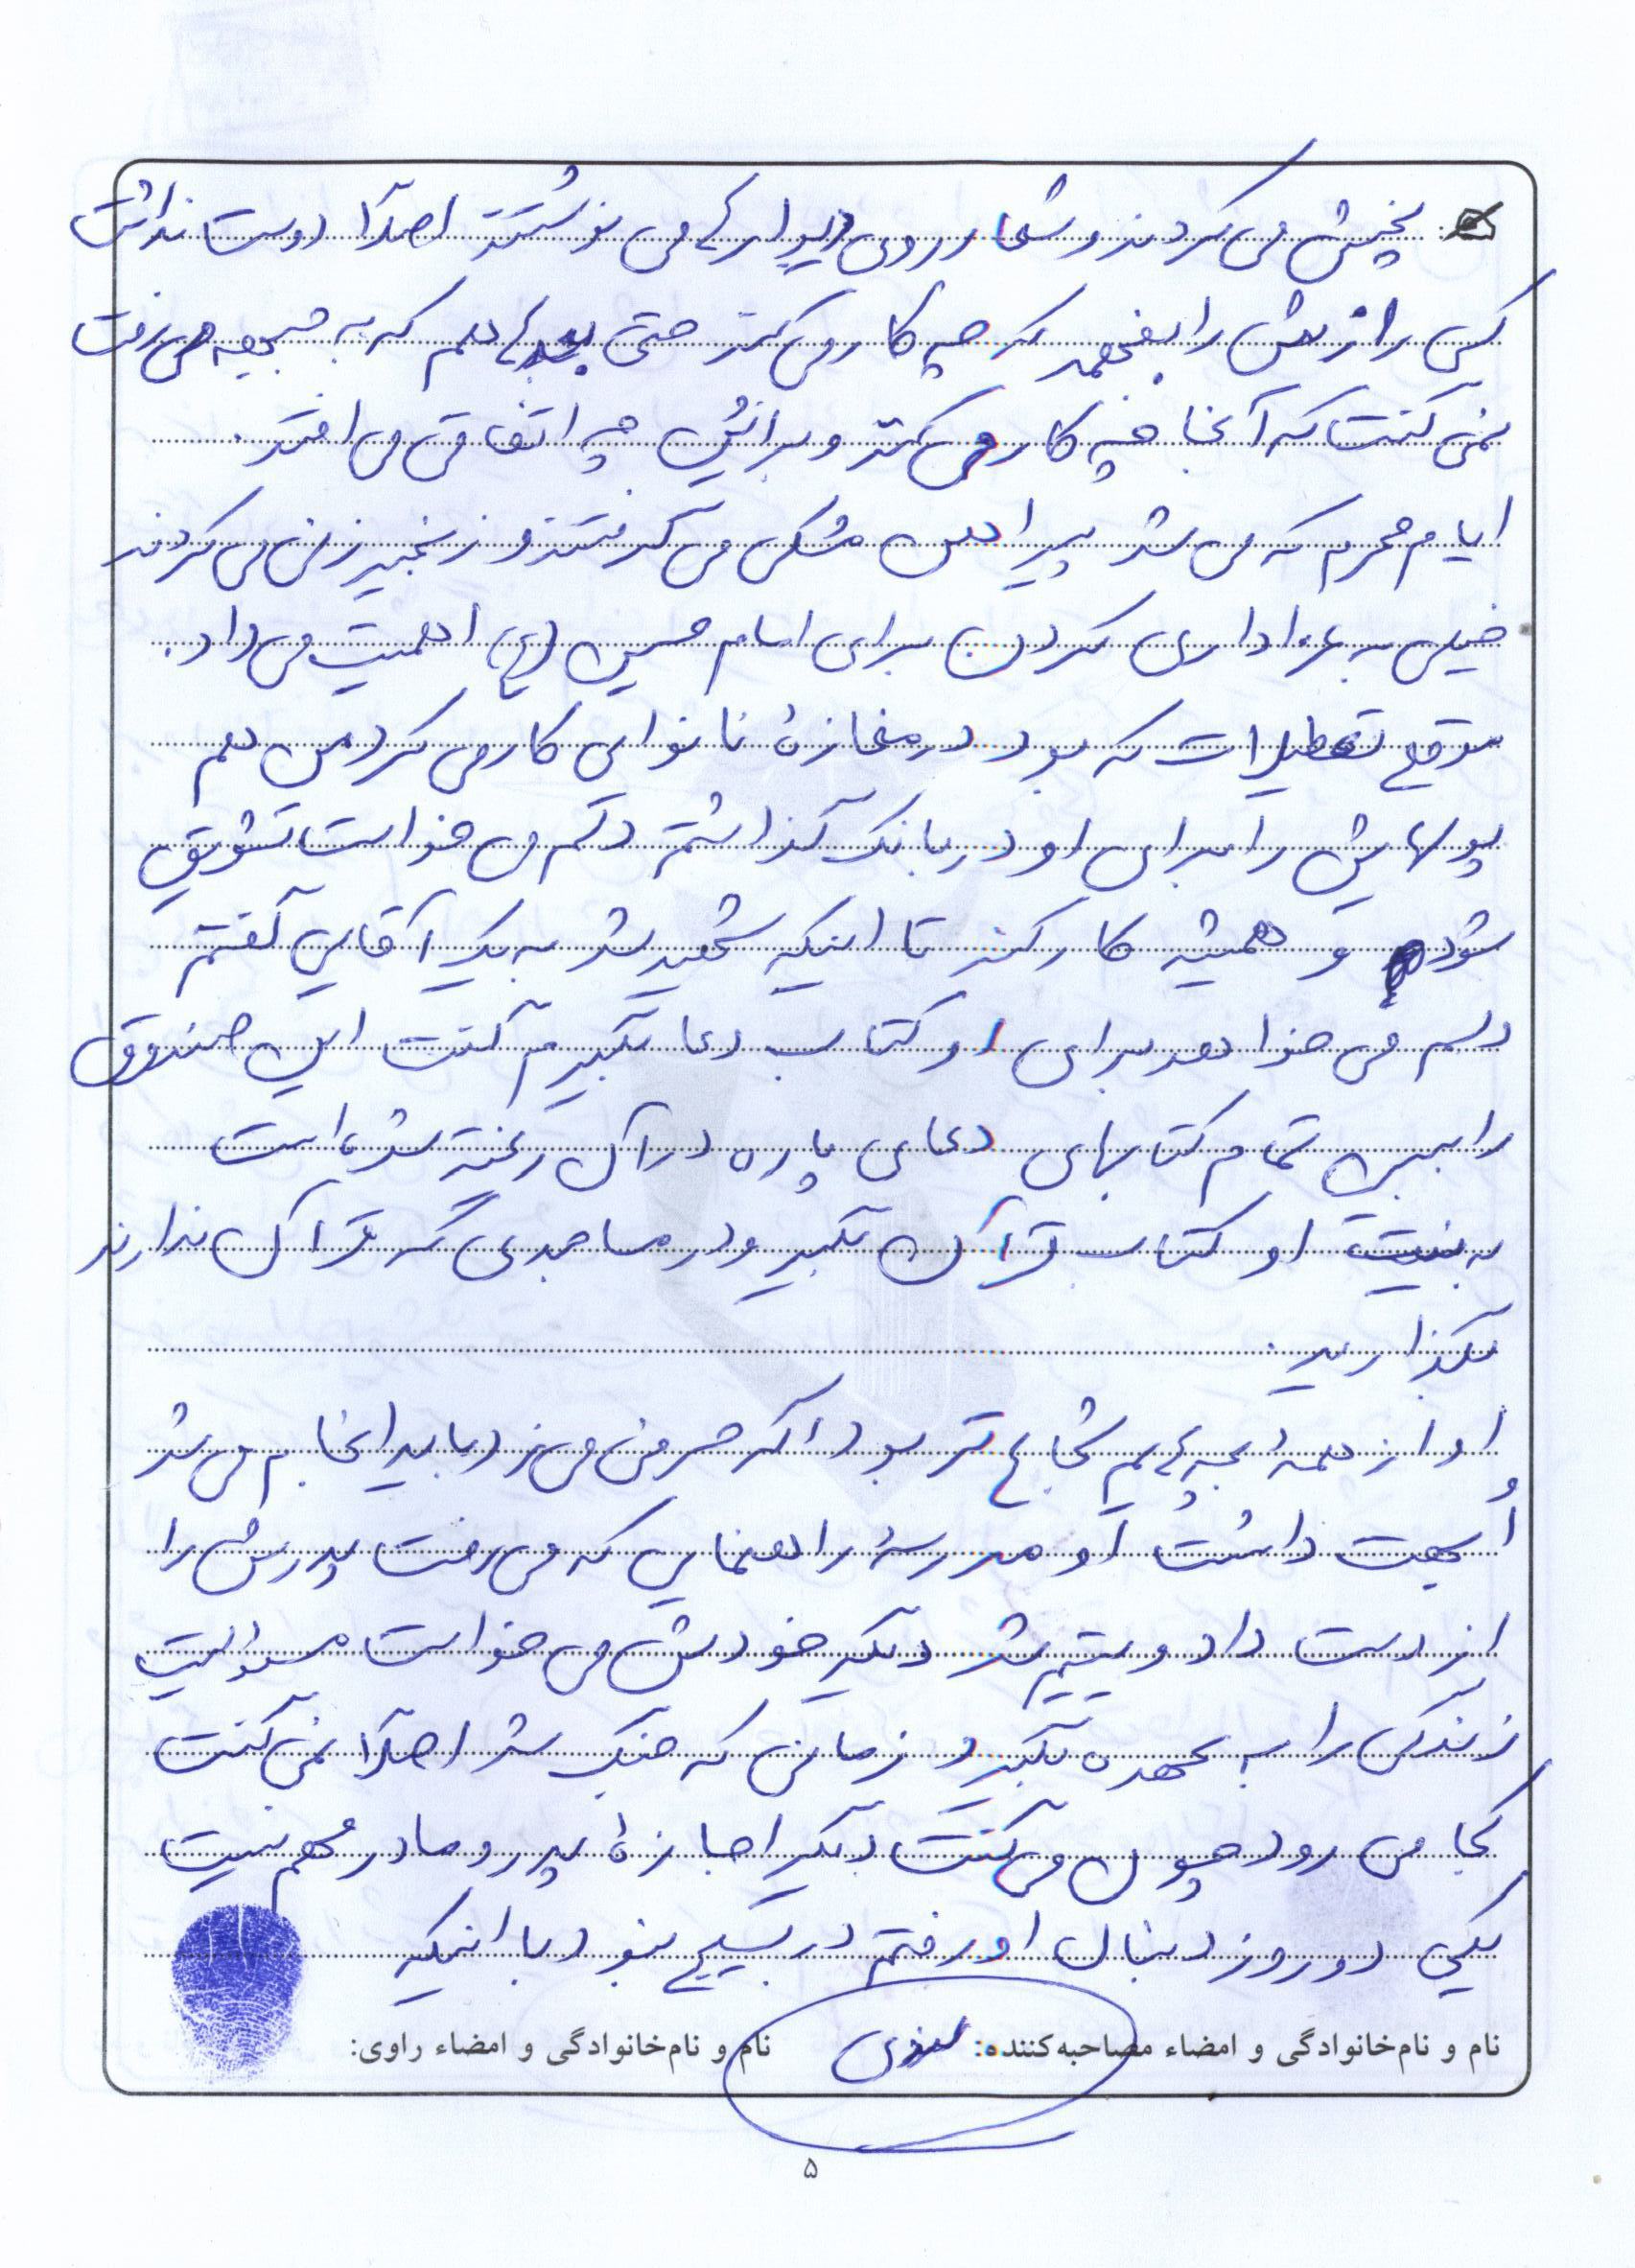 پخش می کردند و شعار روی دیوارها می نوشتند اصلاً دوست نداشت
کسی رازهایش را بفهمد که چه کار می کند حتی بعدها هم که به جبهه می رفت
نمی گفت که آنجا چه کار می کند و برایش چه اتفاقی می افتد.
ایام محرم که می شد پیراهن مشکی می گرفتند و زنجیر زنی می کردند
خیلی به عزاداری کردن برای امام حسین (ع) اهمیت می داد.
موقع تعطیلات که بود در مغازۀ نانوایی کار می کرد من هم
پولهایش را برای او در بانک گذاشتم دلم می خواست تشویق
شود و همیشه کار کند تا اینکه شهید شد به یک آقایی گفتم
دلم می خواهد برای او کتاب دعا بگیرم گفت این صندوق
را ببین تمام کتابهای دعای پاره در آن ریخته شده است
به نیت او کتاب قرآن بگیر و در مساجدی که قرآن ندارند
بگذارید.
او از همۀ بچه هایم شجاع تر بود اگر حرفی می زد باید انجام می شد
اُبهت داشت او مدرسۀ راهنمایی که می رفت پدرش را
از دست داد و یتیم شد دیگر خودش می خواست مسئولیت
زندگی را به عهده بگیرد زمانی که جنگ شد اصلاً نمی گفت
کجا می رود چون می گفت دیگر اجازۀ پدر و مادر مهم نیست
یکی دو روز دنبال او رفتم در بسیج نبود با اینکه
نام و نام‌خانوادگی و امضاء مصاحبه‌کننده: نام و نام‌خانوادگی و امضاء راوی:
۵